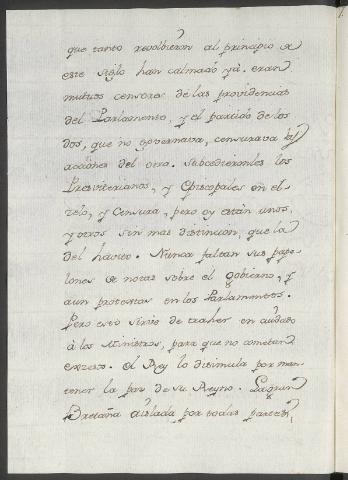 que tanto revolbieron al principio de
este siglo han calmado yà. eran
mutuos censores de las providencias
del Parlamento, y el partido de los
dos, que no governava, censurava las
acciones del otro. Subcedieronles los
Presviterianos, y Episcopales en el
zelo, y Censura, pero oy están unos,
y otros sin mas distincion, que la
del havito. Nunca faltan sus pape-
lones de notas sobre el govierno, y
aun protestas en los Parlamentos.
Pero esto sirve de traher en cuidado
à los Ministros, para que no cometan
exceso. el Rey lo disimula por man-
tener la paz de su Reyno. La gran
Bretaña aislada por todas partes,